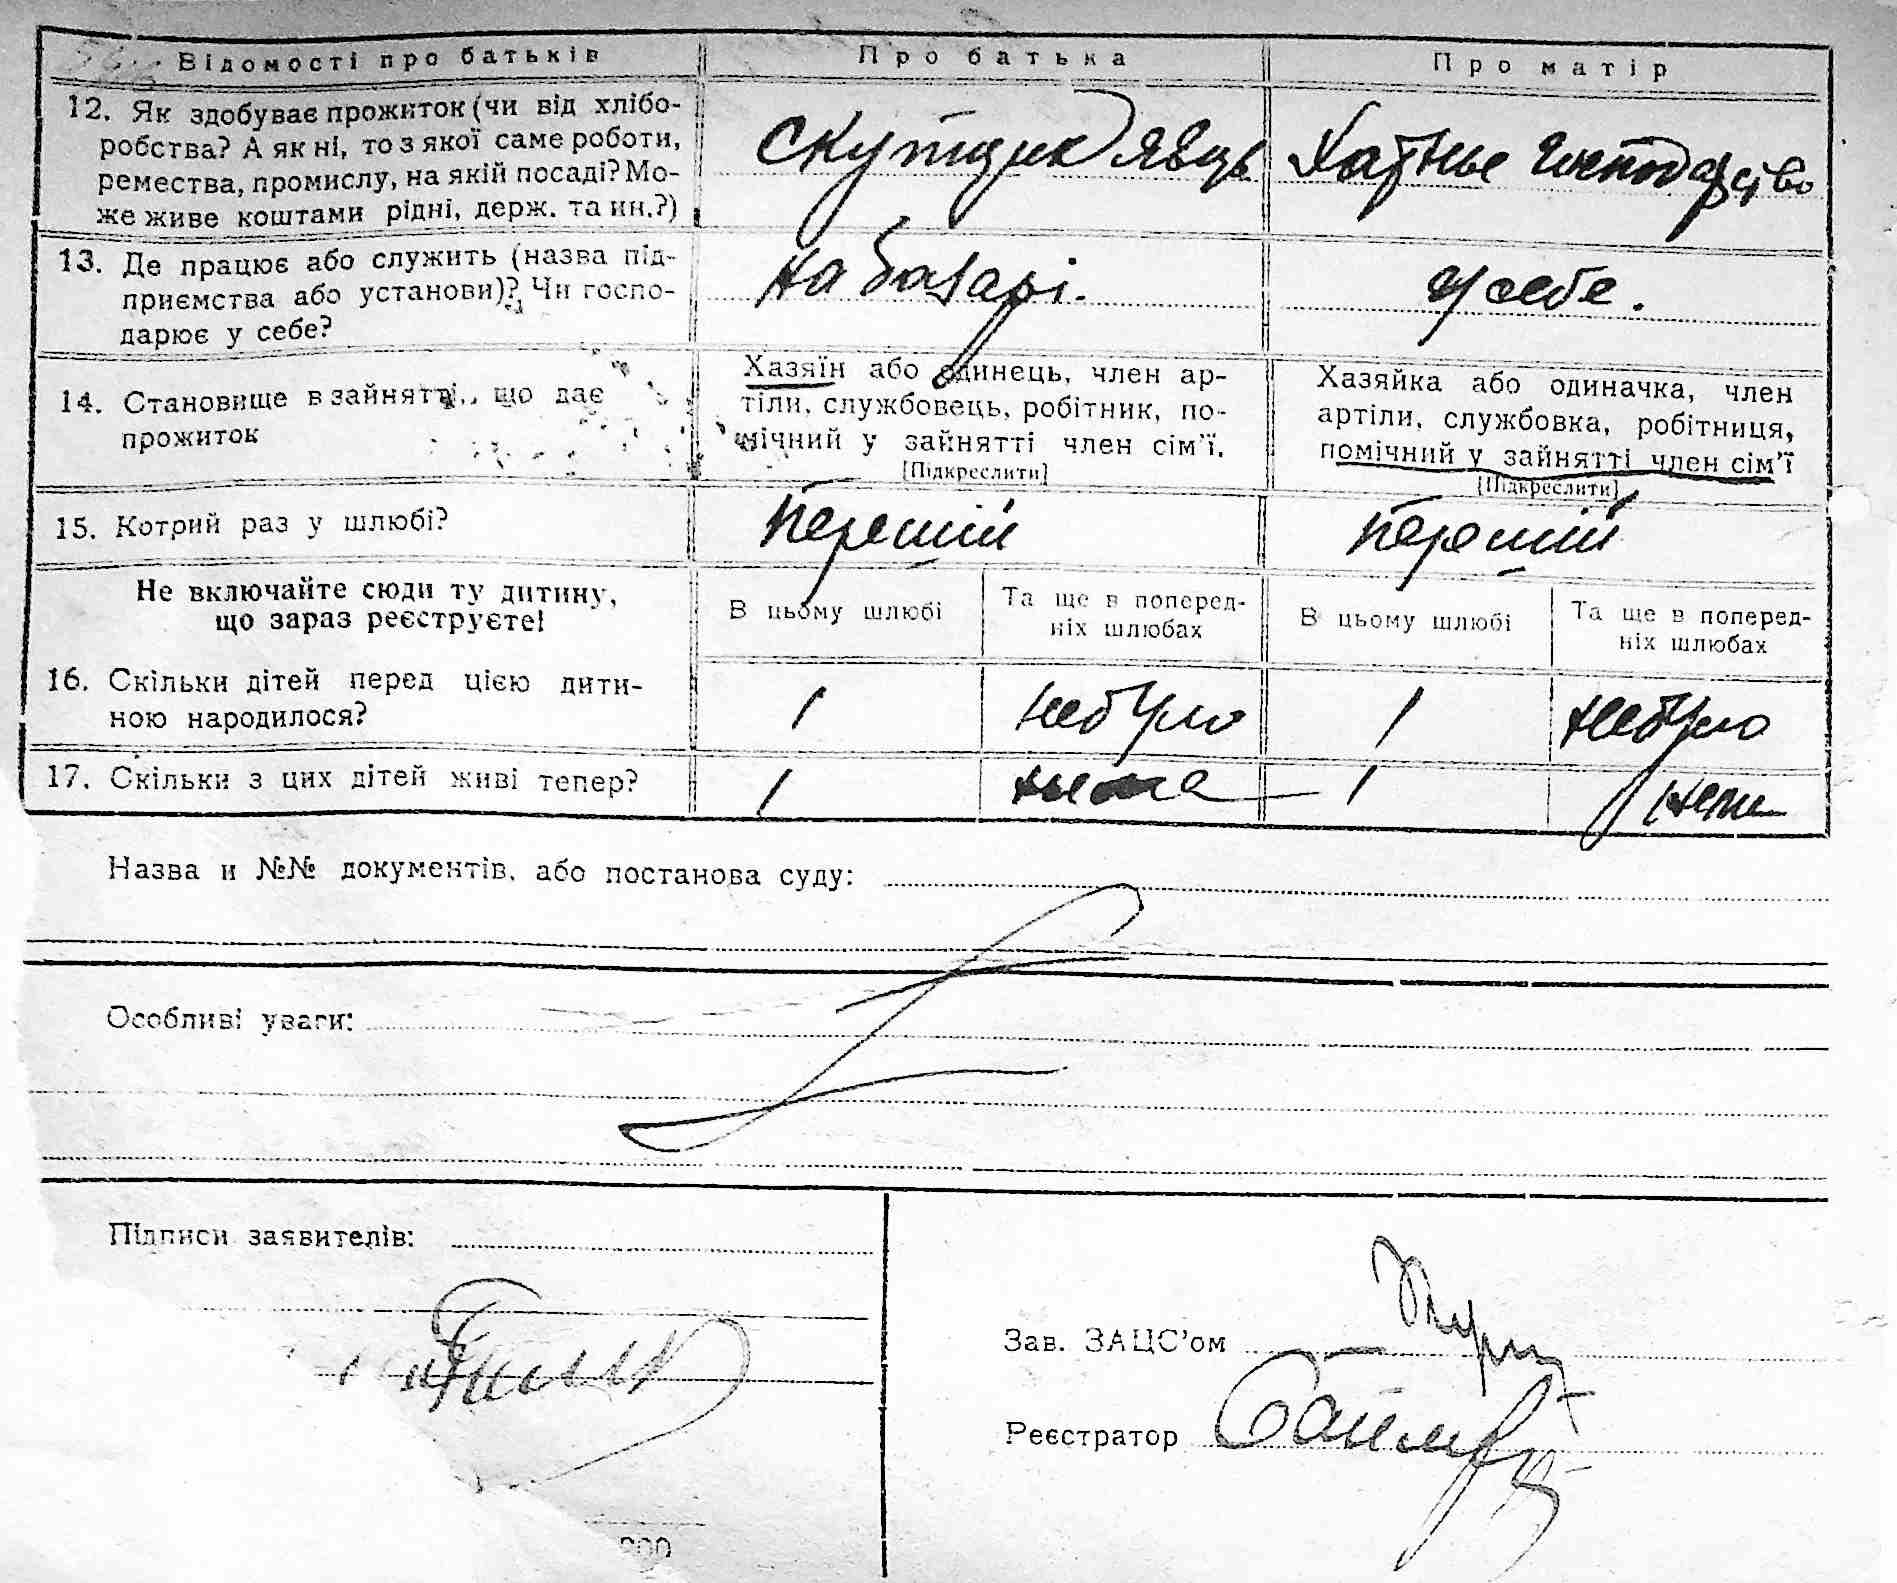 Відомості про батьків
Про батька
Про матір
12. Як здобуває прожиток (чи від хлібо-
робства? А як ні, то з якої саме роботи,
ремества, промислу, на якій посаді? Мо-
же живе коштами рідні, держ. та ин.?)
скупщик яєць
Хатнье господарство
13. Де працює або служить (назва під-
приємства або установи)? Чи госпо-
дарює у себе?
на базарі.
у себе.
14. Становище в зайнятті, що дає
прожиток
Хазяїн або одинець, член ар-
тіли, службовець, робітник, по-
мічний у зайнятті член сім'ї.
[Підкреслити]
Хазяйка або одиначка, член
артіли, службовка, робітниця,
помічний у зайнятті член сім'ї
[Підкреслити]
15. Котрий раз у шлюбі?
Перший
Перший
Не включайте сюди ту дитину,
що зараз реєструєте!
В цьому шлюбі
Та ще в поперед-
ніх шлюбах
В цьому шлюбі
Та ще в поперед-
ніх шлюбах
16. Скільки дітей перед цією дити-
ною народилося?
1
небуло
1
небуло
17. Скільки з цих дітей живі тепер?
1
1
Назва и №№ документів, або постанова суду:
Особливі уваги:
Підписи заявителів:
Зав. ЗАЦС'ом
Реєстратор